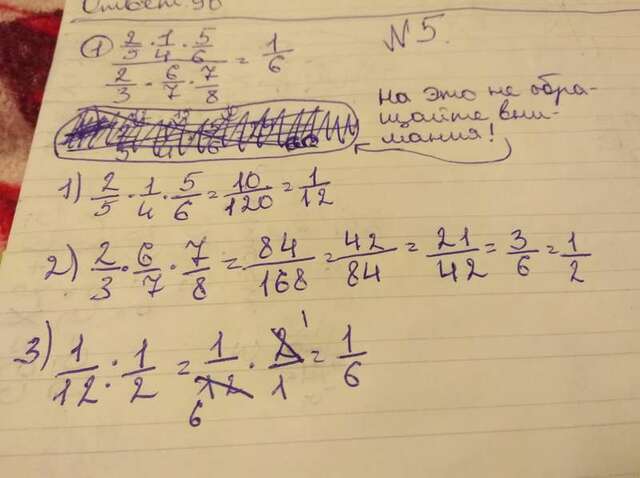 Ответ: 90
N 5.
① (2/5 · 1/4 · 5/6)/(2/3 · 6/7 · 7/8) = 1/6
На это не обра-
щайте вни-
мания!
1) 2/5 · 1/4 · 5/6 = 10/120 = 1/12
2) 2/3 · 6/7 · 7/8 = 84/168 = 42/84 = 21/42 = 3/6 = 1/2
3) 1/12 : 1/2 = 1/12 6 · 2/1 1 = 1/6